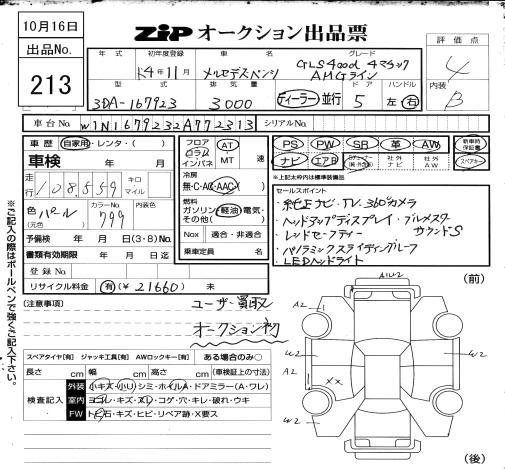 10月16日
ZIP オークション出品票
出品No.
213
年式 初年度登録 車名 グレード 評価点
R4年11月 メルセデスベンツ GLS400d 4マチック AMGライン 4
型式 排気量 ドア ハンドル 内装
3DA-167923 3000 ディーラー・並行 5 左・右 B
車台No. W1N1679232A772313 シリアルNo.
車歴 自家用・レンタ・( )
フロア コラム インパネ AT MT 速
PS PW SR 革 AW 新車時保証書
ナビ エアB 社外ナビ 社外AW スペアキー
▲上記太わく枠内は標準装備品
車検 年 月
冷房 無・C・AC・AAC
セールスポイント
走行 108,559 キロ マイル
燃料 ガソリン・軽油・電気・その他( )
・純正ナビ・TV、360°カメラ
色 パール (元色) カラーNo. 799 内装色
・ヘッドアップディスプレイ・ブルメスター
サウンドS
・レッドセーフティー
予備検 年 月 日(3・8)No.
Nox 適合・非適合
・パノラミックスライディングルーフ
書類有効期限 年 月 日迄
乗車定員 名
・LEDヘッドライト
登録No.
リサイクル料金 有(¥ 21660) 未
(注意事項)
ユーザー買取
オークション初
(前)
A1W2
A2
W2
W2
A2
XX
W2
(後)
スペアタイヤ[有] ジャッキ工具[有] AWロックキー[有] ある場合のみ○
長さ cm 幅 cm 高さ cm (車検証上の寸法)
検査記入
外装 小キズ・小U・シミ・ホイルA・ドアミラー(A・ワレ)
室内 ヨゴレ・キズ・スレ・コゲ・穴・キレ・破れ・ウキ
FW トビ石・キズ・ヒビ・リペア跡・X要ス
※ご記入の際はボールペンで強くご記入下さい。